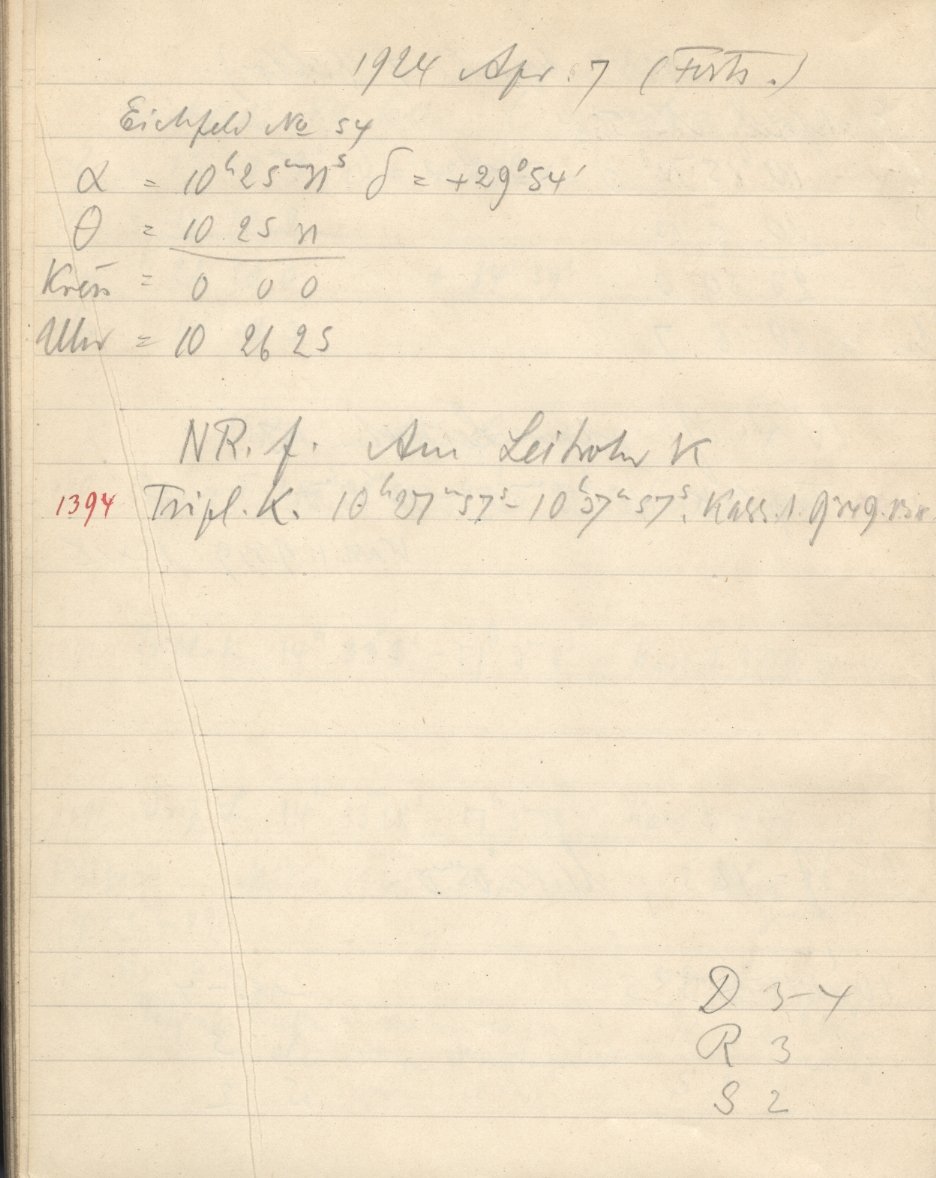 1924 Apr. 7 (Forts.)
Eichfeld No 54
α = 10h 25m 31s δ = +29° 54'
θ = 10 25 31
Kreis = 0 0 0
Uhr = 10 26 25
NR. f. Am Leitrohr K
1394 Tripl. K. 10h 27m 57s - 10h 37m 57s. Kass. 1.
D 3-4
R 3
S 2